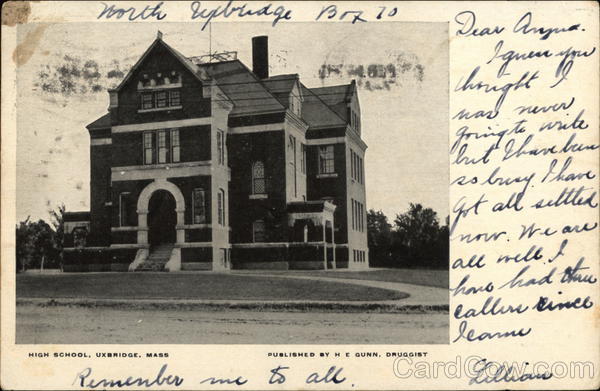 North Uxbridge Box 70
Dear Anyna.
I guess you
thought I
was never
going to write
but I have been
so busy. I have
got all settled
now. We are
all well. I
have had three
callers since
I came
Lillian
HIGH SCHOOL, UXBRIDGE, MASS
PUBLISHED BY H E GUNN, DRUGGIST
Remember me to all.
CardCow.com